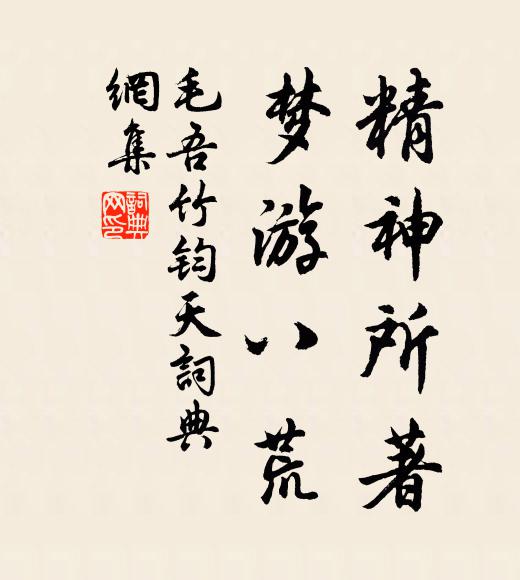 精神所著
梦游八荒
毛吾竹钧天詞典
網集
詞典
网印